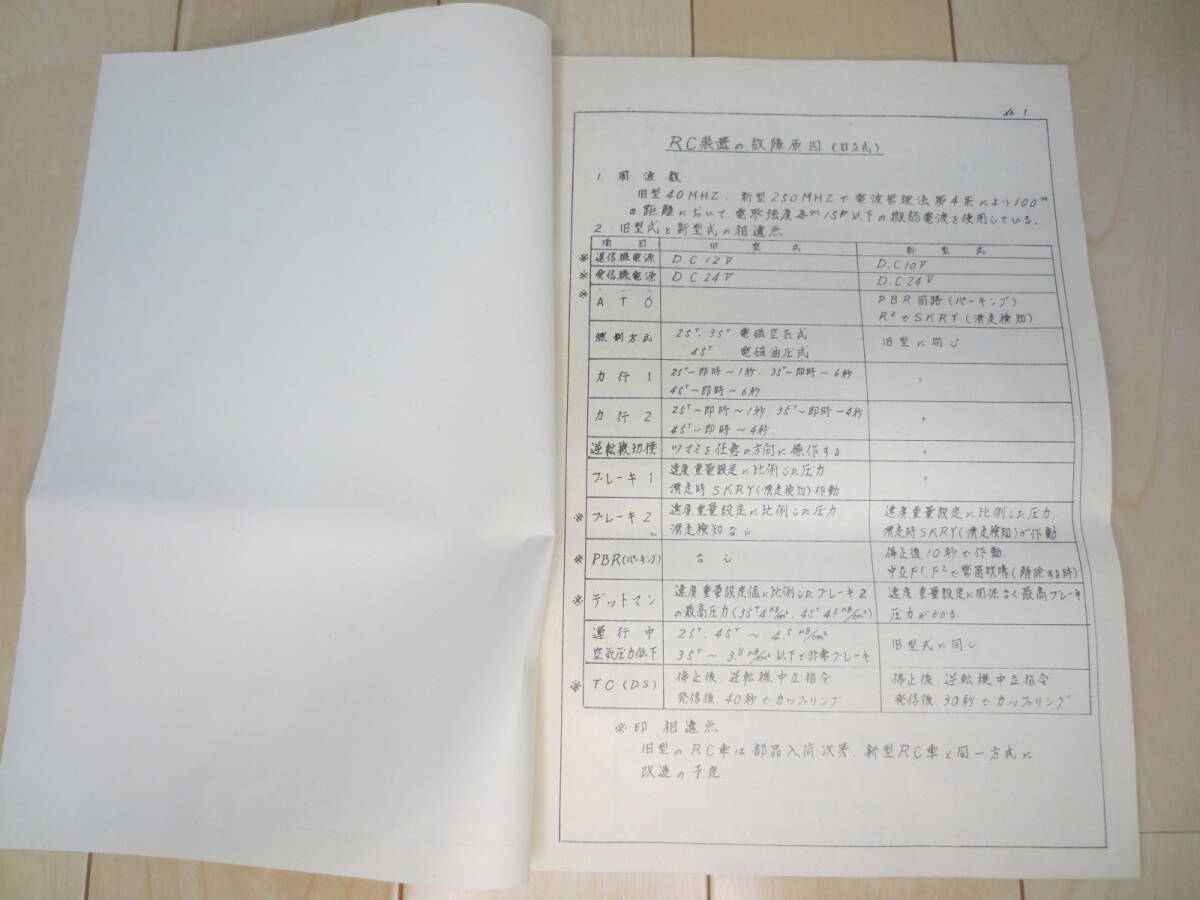 No. 1
RC装置の故障原因(日立式)
1 周波数
旧型40MHZ. 新型250MHZで電波管理法第4条により100m
の距離において、電界強度毎m15μ以下の微弱電波を使用している.
2. 旧型式と新型式の相違点
項目 旧型式 新型式
※ 送信機電源 D.C 12V D.C 10V
※ 受信機電源 D.C 24V D.C 24V
※ ATO PBR回路(パーキング)
R2でSKRY(滑走検知)
燃制方式 25T. 35T 電磁空気式 旧型に同じ
45T 電磁油圧式
力行1 25T~即時~1秒. 35T~即時~6秒 〃
45T~即時~6秒
力行2 25T~即時~1秒 35T~即時~4秒 〃
45T~即時~4秒.
逆転機切換 ツマミを任意の方向に操作する 〃
ブレーキ1 速度重量設定に比例した圧力 〃
滑走時SKRY(滑走検知)作動
※ ブレーキ2 速度重量設定に比例した圧力 速度重量設定に比例した圧力
滑走検知なし 滑走時SKRY(滑走検知)が作動
※ PBR(パーキング) なし 停止後10秒で作動.
中立F1.F2で警笛吹鳴(解除する時)
※ デットマン 速度重量設定値に比例したブレーキ2 速度重量設定に関係なく最高ブレーキ
の最高圧力(35T4kg/cm². 45T4.5kg/cm²) 圧力がかかる.
運行中 25T. 45T ~ 4.5kg/cm² 旧型式に同じ
空気圧力低下 35T ~ 3.8kg/cm²以下で非常ブレーキ
※ TC(DS) 停止後. 逆転機中立指令 停止後. 逆転機中立指令
発信後. 40秒でカップリング 発信後. 30秒でカップリング
※印 相違点
旧型のRC車は部品入荷次第. 新型RC車と同一方式に
改造の予定